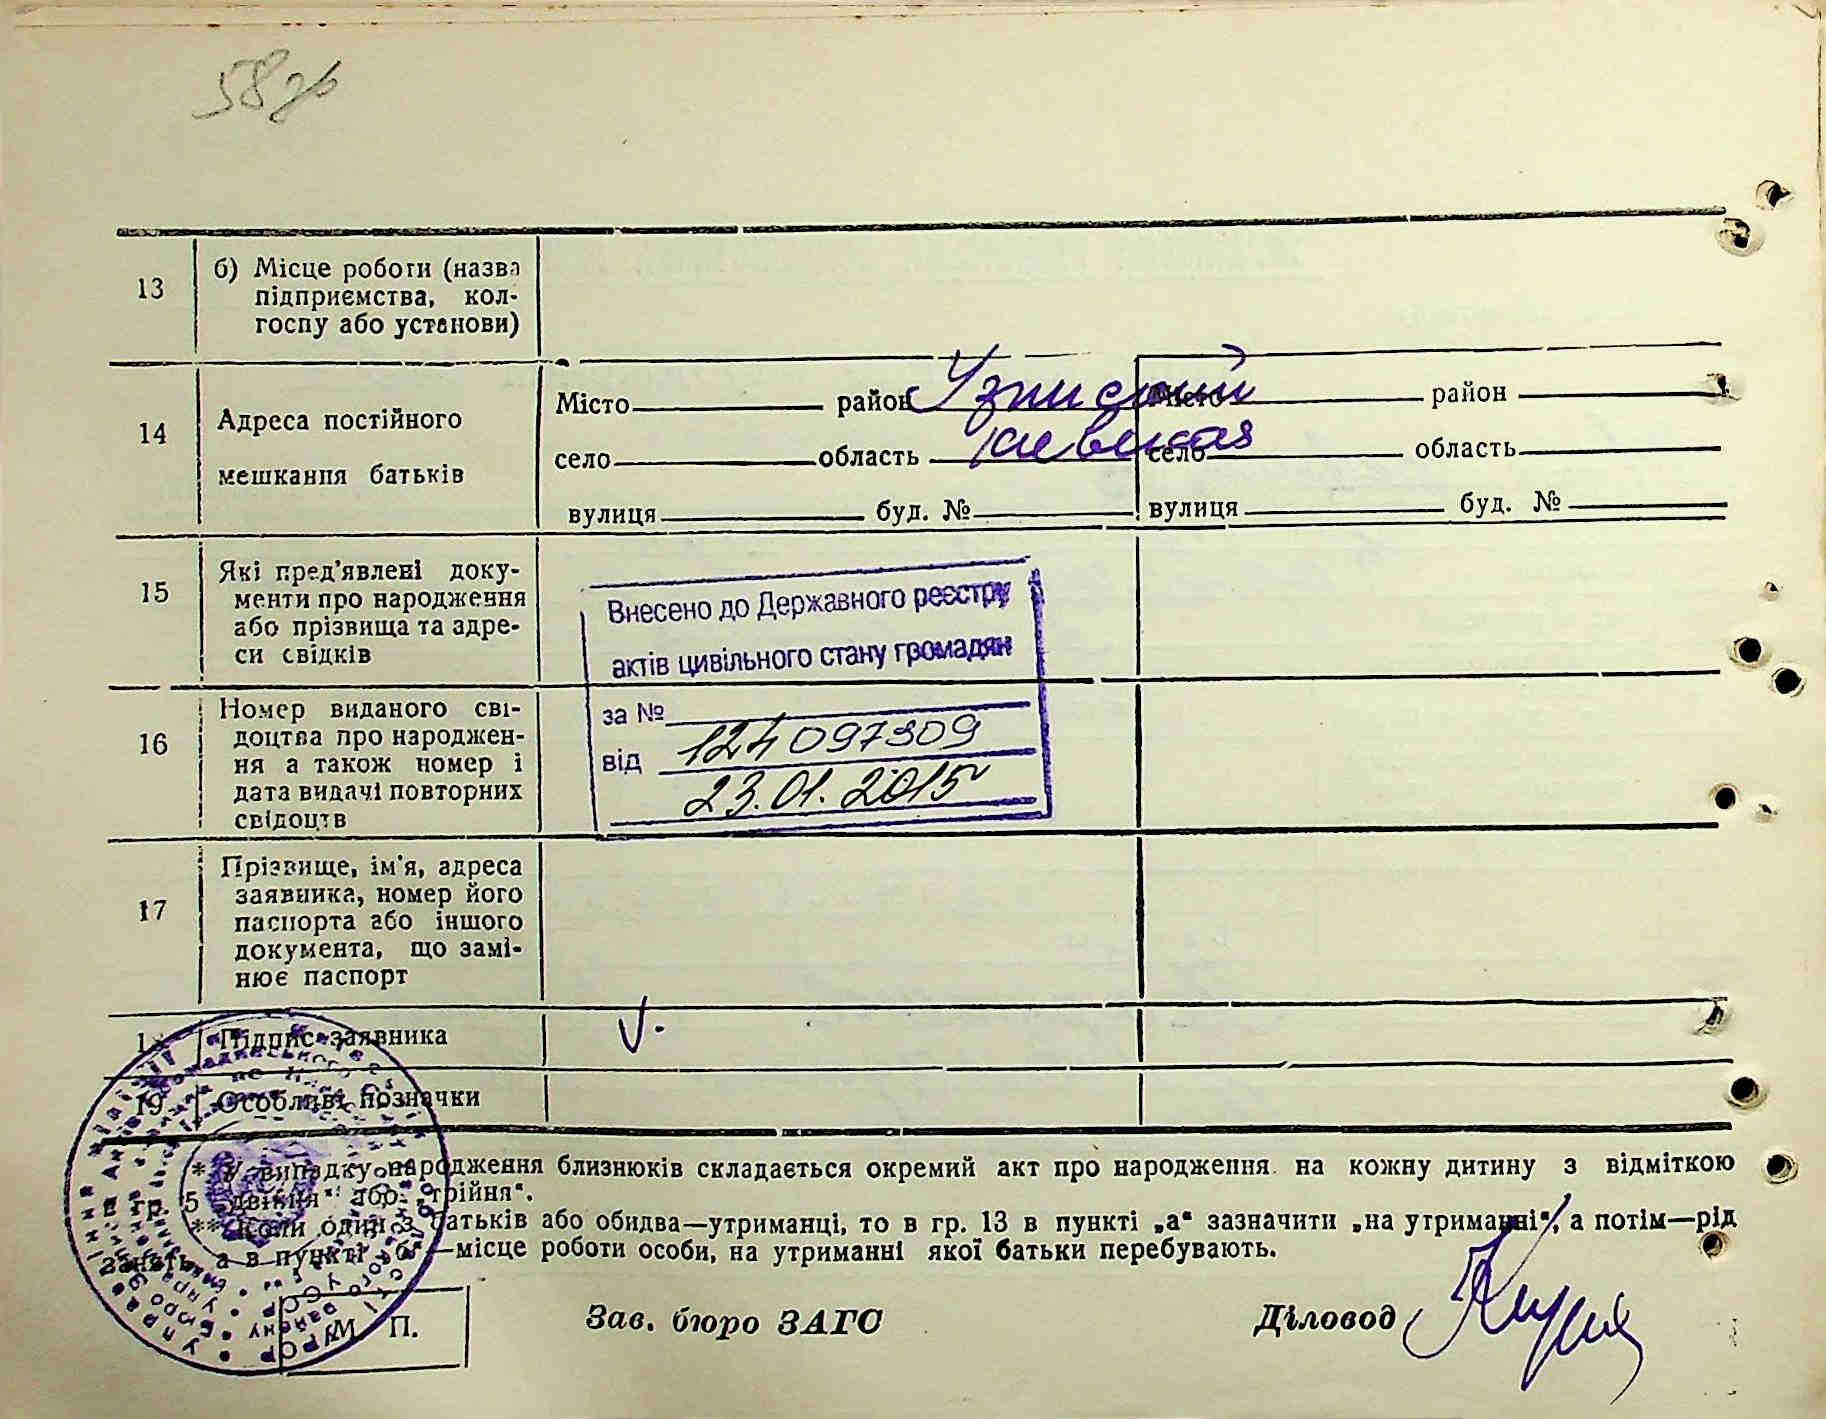 58
13
б) Місце роботи (назва
підприємства, кол-
госпу або установи)
14
Адреса постійного
мешкання батьків
Місто район
село область Киевская
вулиця буд. №
Місто район
село область
вулиця буд. №
15
Які пред'явлені доку-
менти про народження
або прізвища та адре-
си свідків
Внесено до Державного реєстру
актів цивільного стану громадян
за №
124097309
від
23.01.2015
16
Номер виданого сві-
доцтва про народжен-
ня а також номер і
дата видачі повторних
свідоцтв
17
Прізвище, ім'я, адреса
заявника, номер його
паспорта або іншого
документа, що замі-
нює паспорт
Підпис заявника
19 Особливі позначки
* У випадку народження близнюків складається окремий акт про народження на кожну дитину з відміткою
в гр. 5 „двійня“ або „трійня“.
** Коли один з батьків або обидва—утриманці, то в гр. 13 в пункті „а“ зазначити „на утриманні“, а потім—рід
занять, а в пункті „б“—місце роботи особи, на утриманні якої батьки перебувають.
М. П.
Зав. бюро ЗАГС
Діловод